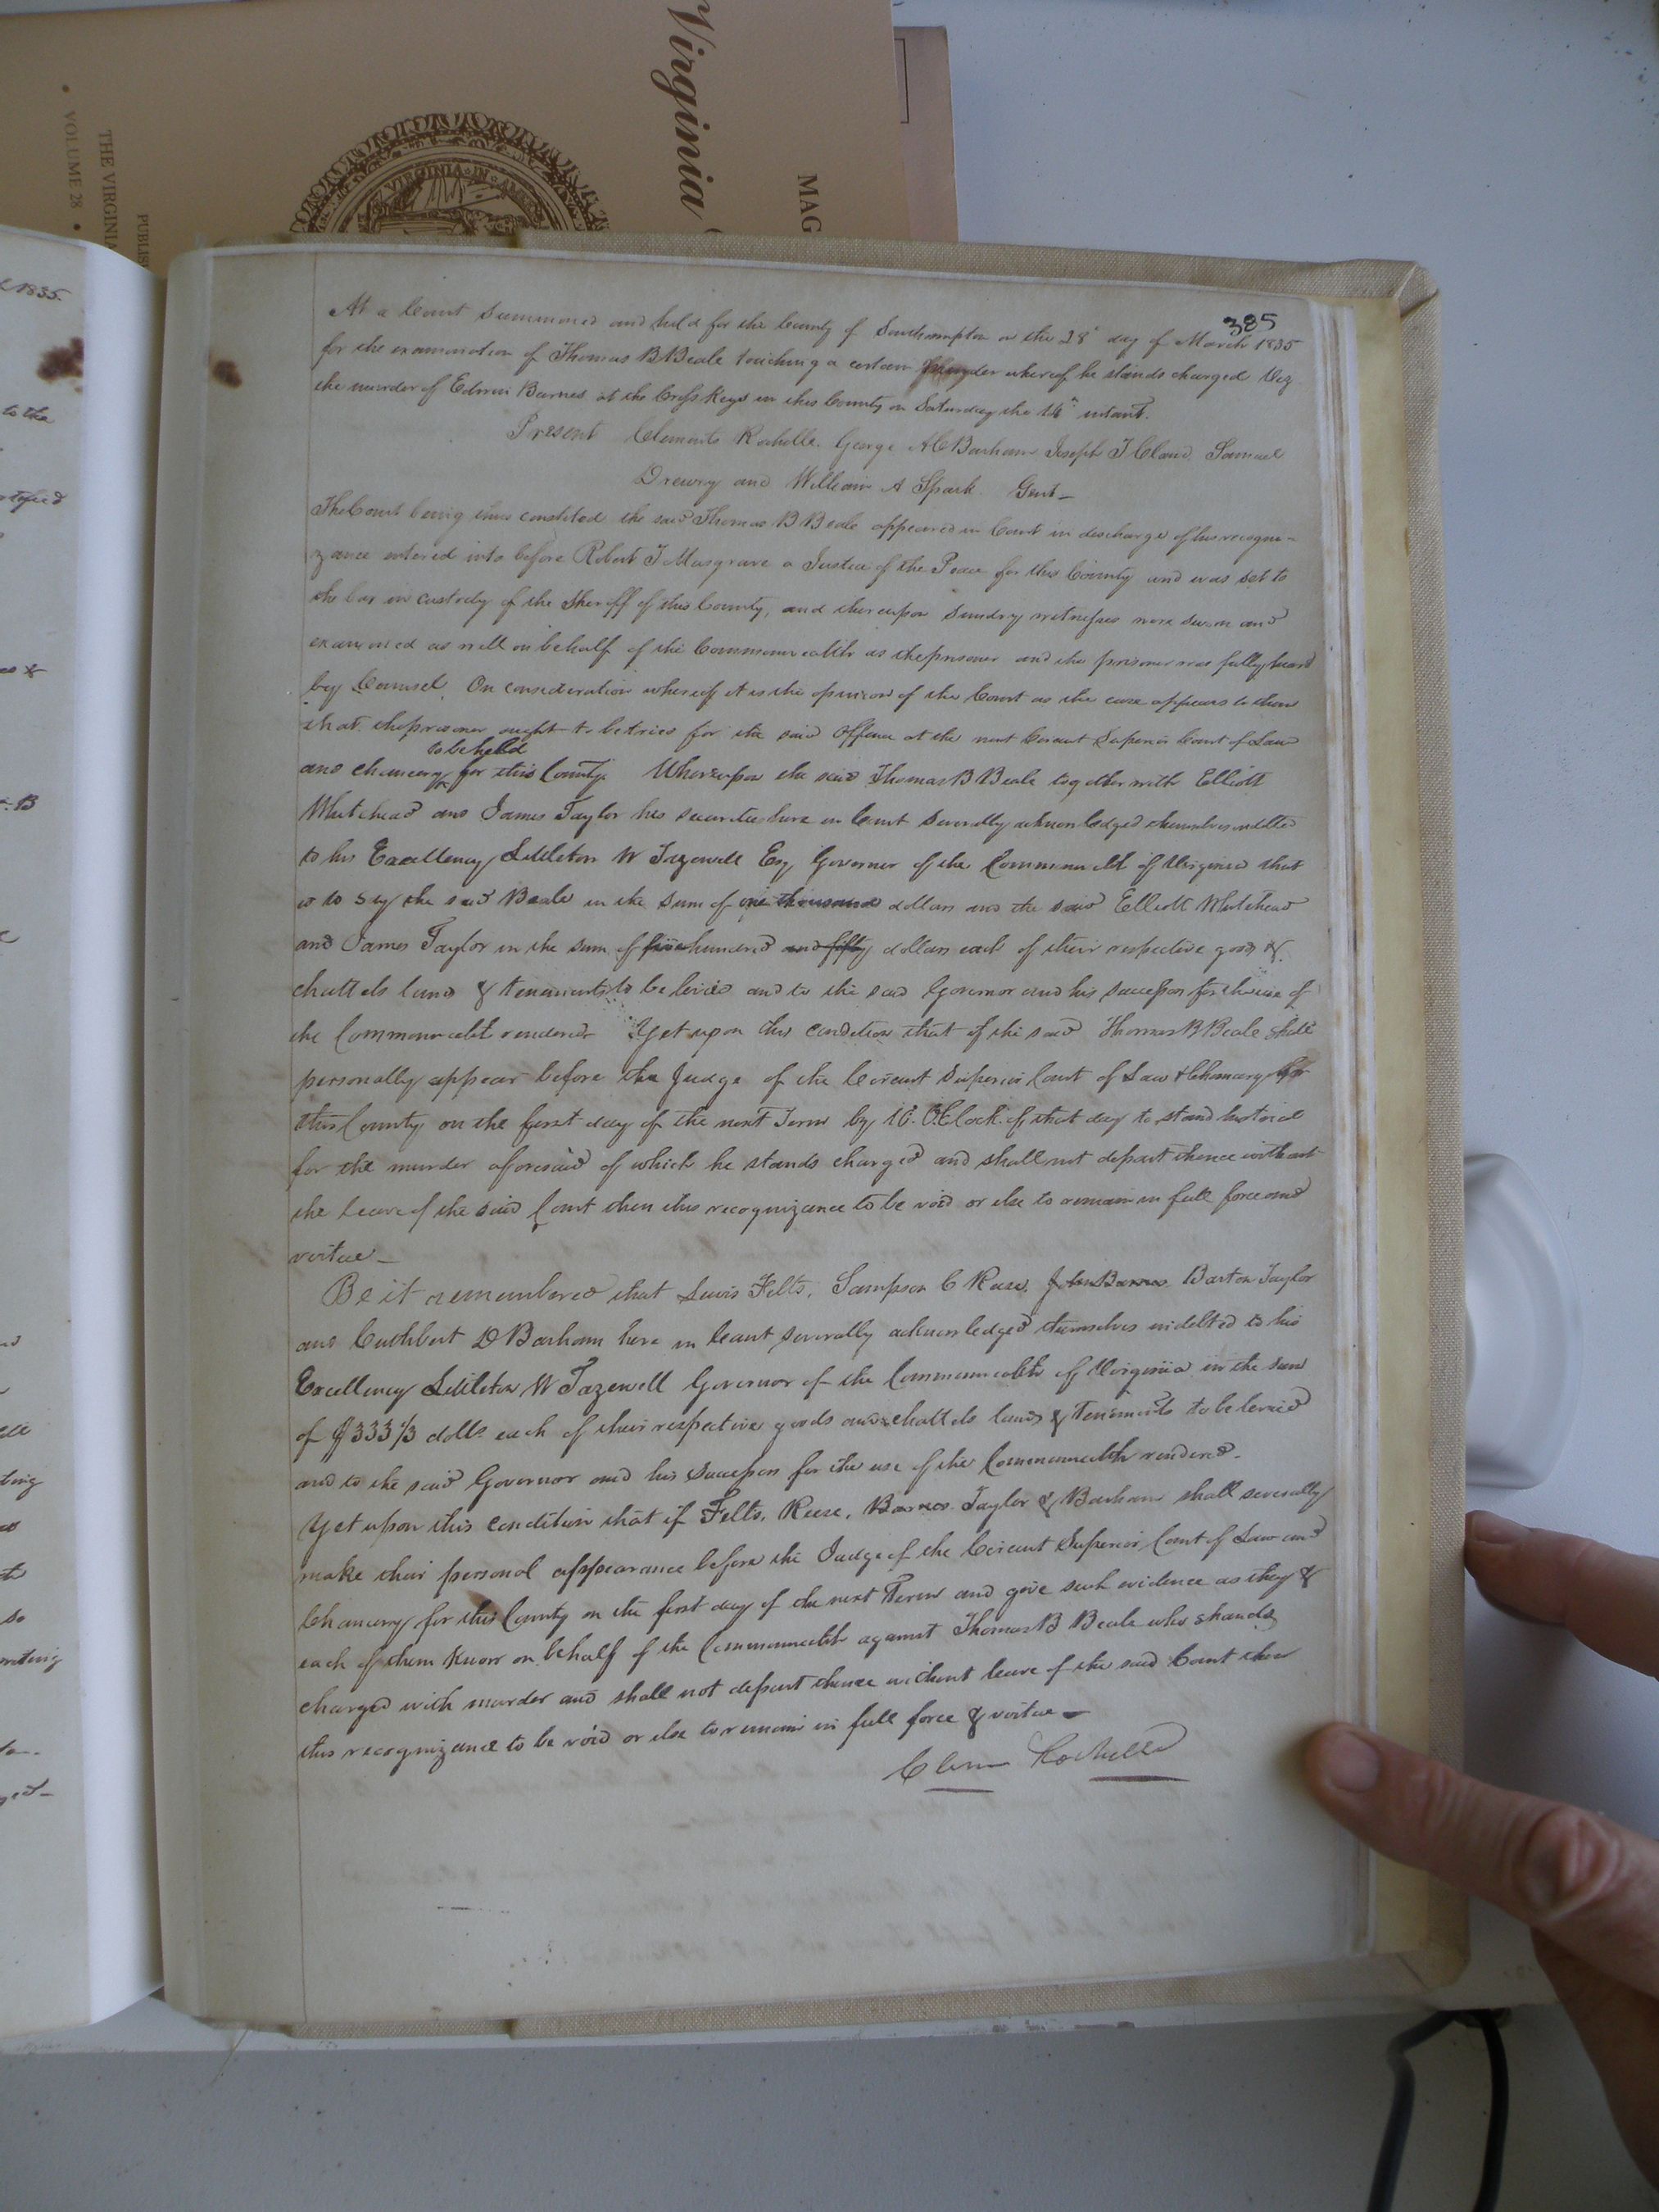 Virginia
MAG
THE VIRGINIA
VOLUME 28
PUBLIS
VIRGINIA IN AM
1835.
to the
385
At a Court Summoned and held for the County of Southampton on the 28th day of March 1835
for the examination of Thomas B Beale touching a certain murder whereof he stands charged Viz
the murder of Edwin Barnes at the Cross Keys in this County on Saturday the 14th instant.
Present Clements Rochelle. George A C Barham Joseph T Claud. Samuel
Drewry and William A Spark. Gent
The Court being thus constited the said Thomas B Beale appeared in Court in discharge of his recogni-
zance entered into before Robert T Musgrave a Justice of the Peace for this County and was set to
the bar in custody of the Sheriff of this County, and thereupon Sundry witnesses were sworn and
examined as well on behalf of the Commonwealth as the prisoner and the prisoner was fully heard
by Counsel. On consideration whereof it is the opinion of the Court as the case appears to them
that the prisoner ought to be tried for the said Offence at the next Circuit Superior Court of Law
to be held
and chancery for this County. Whereupon the said Thomas B Beale together with Elliott
Whitehead and James Taylor his securities here in Court Severally acknowledged themselves indebted
to his Excellency Littleton W Tazewell Esq Governor of the Commonwealth of Virginia that
is to say the said Beale in the Sum of one thousand dollars and the said Elliott Whitehead
and James Taylor in the sum of five hundred and fifty dollars each of their respective goods &
chattels lands & tenements to be levied and to the said Governor and his successors for the use of
the Commonwealth rendered Yet upon this condition that if the said Thomas B Beale shall
personally appear before the Judge of the Circuit Superior Court of Law & Chancery for
this County on the first day of the next Term by 10. O.Clock of that day to stand his trial
for the murder aforesaid of which he stands charged and shall not depart thence without
the leave of the said Court then this recognizance to be void or else to remain in full force and
virtue
Be it remembered that Lewis Felts, Sampson C Reese, John Barnes Barton Taylor
and Cuthbert D Barham here in Court severally acknowledged themselves indebted to his
Excellency Littleton W Tazewell Governor of the Commonwealth of Virginia in the sum
of $333 1/3 dolls each of their respective goods and chattels lands & Tenements to be levied
and to the said Governor and his Successors for the use of the Commonwealth rendered.
Yet upon this condition that if Felts, Reese, Barnes Taylor & Barham shall severally
make their personal appearance before the Judge of the Circuit Superior Court of Law and
Chancery for this County on the first day of the next Term and give such evidence as they &
each of them know on behalf of the Commonwealth against Thomas B Beale who stands
charged with murder and shall not depart thence without leave of the said Court then
this recognizance to be void or else to remain in full force & virtue
Clem Rochelle